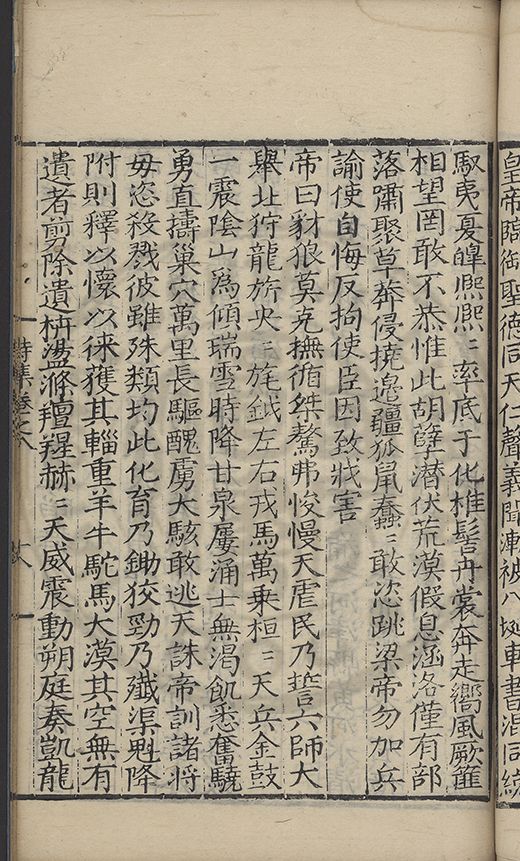 皇帝臨御聖德同天仁聲義聞漸被八埏車書混同統
馭夷夏皥熙熙〻率底于化椎髻卉裳奔走嚮風厥篚
相望罔敢不恭惟此胡孽潜伏荒漠假息涵洛僅有部
落嘯聚草莽侵撓邉疆狐鼠蠢〻敢恣跳梁帝勿加兵
諭使自悔反拘使臣因致戕害
帝曰豺狼莫克撫循桀驁弗悛慢天虐民乃誓六師大
舉北狩龍旂央〻旄鉞左右戎馬萬乗桓〻天兵金鼓
一震陰山爲傾瑞雪時降甘泉屢涌士無渴飢悉奮驍
勇直擣巢穴萬里長驅醜虜大駭敢逃天誅帝訓諸將
毋恣殺戮彼雖殊類均此化育乃鋤狡勁乃殱渠魁降
附則釋以懷以徠獲其輜重羊牛駝馬大漠其空無有
遺者剪除遺枿盪滌羶腥赫〻天威震動朔庭奏凱龍